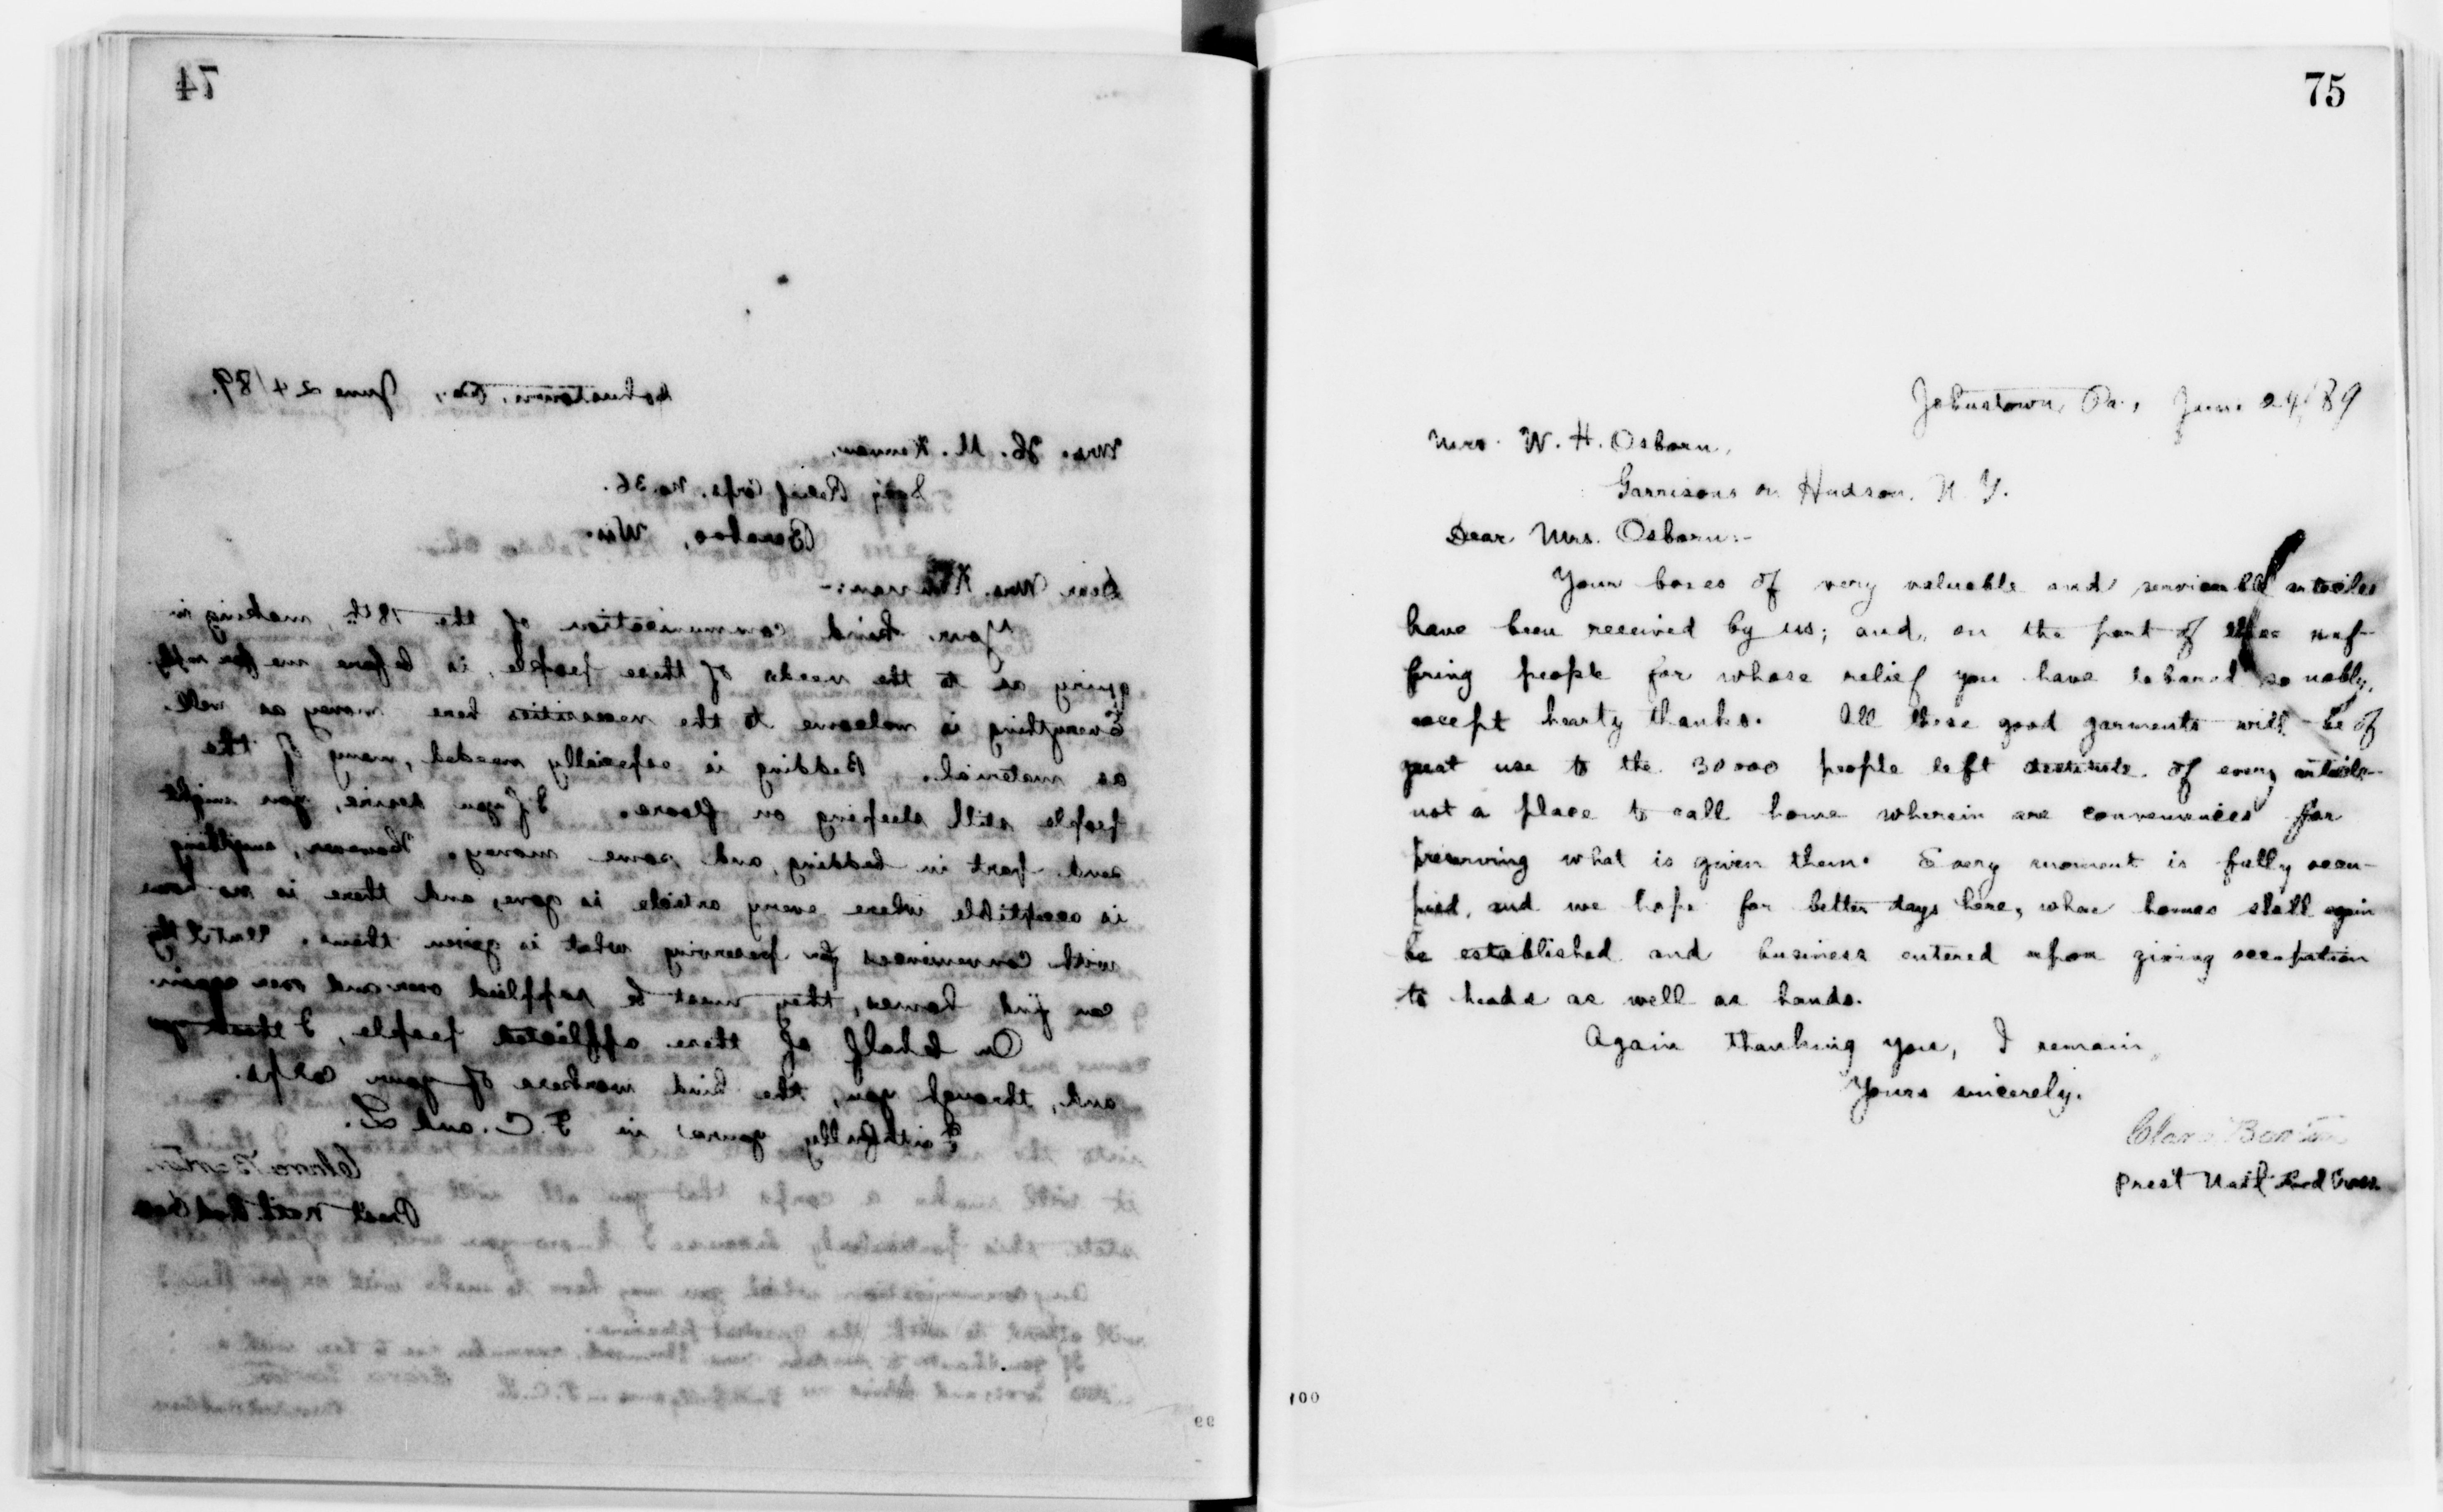 74
Johnstown, Pa., June 24/89.
Mrs. H. M. Keenan,
Relief Corps. No. 36.
Baraboo, Wis.
Dear Mrs. Keenan:-
Your kind communication of the 18th, making in-
quiry as to the needs of these people, is before me for reply.
Everything is welcome to the necessities here money as well
as material. Bedding is especially needed, many of the
people still sleeping on floors. If you desire, you might
send part in bedding, and some money. However, anything
is acceptible where every article is gone, and there is no home
with conveniences for preserving what is given them. Until they
can find homes, they must be supplied over and over again.
On behalf of these afflicted people, I thank you
and, through you, the kind workers of your corps.
Faithfully yours in F. C. and L.
Clara Barton
Prest Natl Red Cross
99
75
Johnstown, Pa., June 24/89
Mrs. W. H. Osborn,
Garrisons on Hudson. N. Y.
Dear Mrs. Osborn:-
Your boxes of very valuable and servicable articles
have been received by us; and, on the part of these suf-
fring people for whose relief you have labored so nobly,
accept hearty thanks. All these good garments will be of
great use to the 30000 people left destitute of every article-
not a place to call home wherein are conveniences for
preserving what is given them. Every moment is fully occu-
pied, and we hope for better days here, when homes shall again
be established and business entered upon giving occupation
to heads as well as hands.
Again thanking you, I remain,
Yours sincerely.
Clara Barton
Prest Natl Red Cross
100